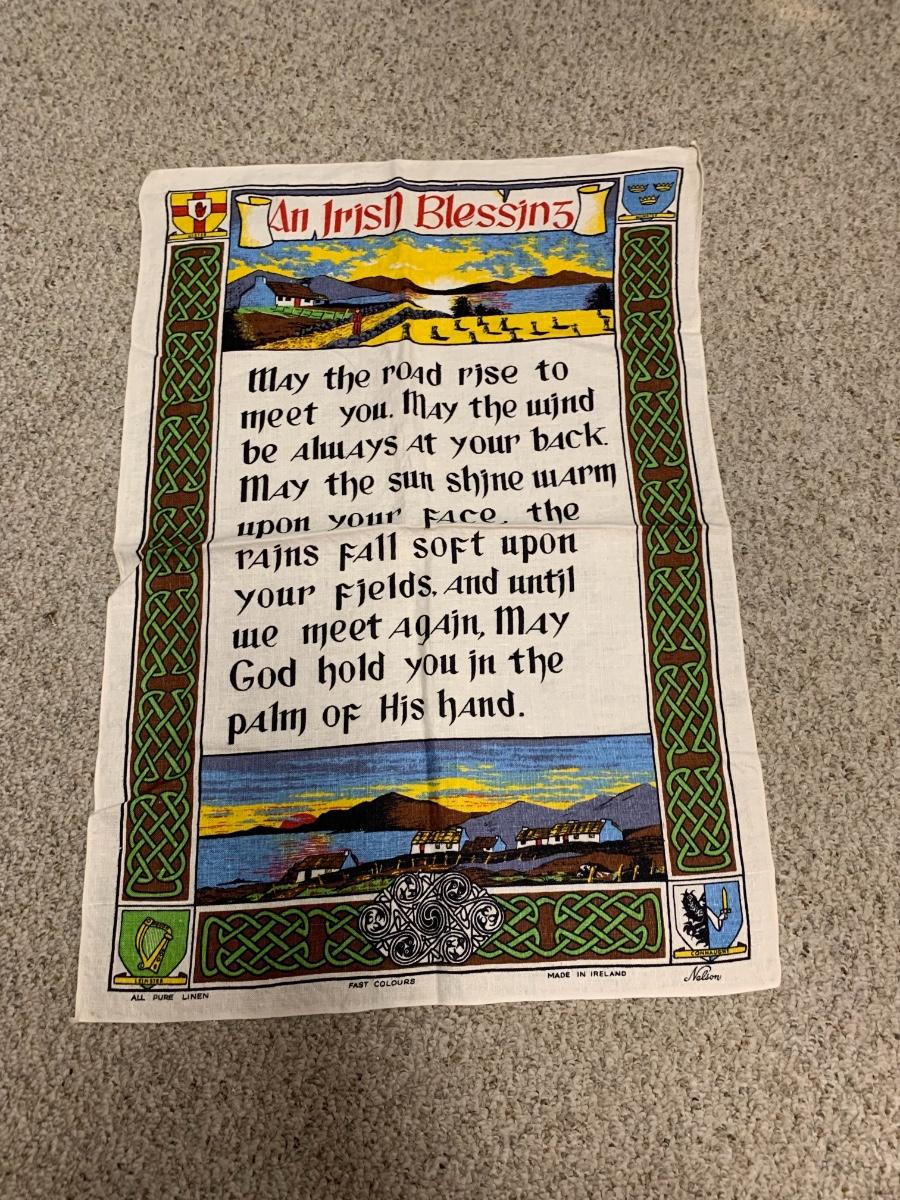 ULSTER
An Irish Blessing
MUNSTER
May the road rise to
meet you. May the wind
be always at your back.
May the sun shine warm
upon your face, the
rains fall soft upon
your fields, and until
we meet again, May
God hold you in the
palm of His hand.
LEINSTER
CONNAUGHT
ALL PURE LINEN
FAST COLOURS
MADE IN IRELAND
Nelson